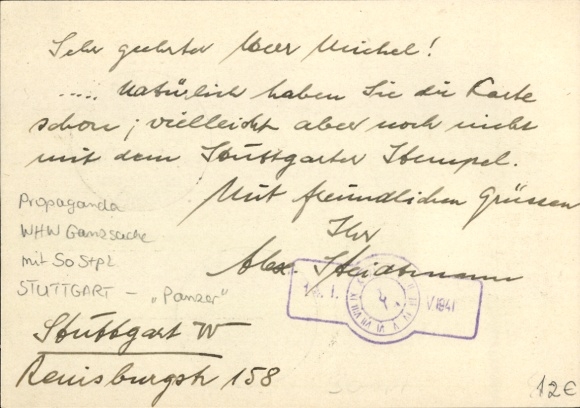 Sehr geehrter Herr Michel!
..... natürlich haben Sie die Karte
schon; vielleicht aber noch nicht
mit dem Stuttgarter Stempel.
Mit freundlichen Grüssen
Ihr
Alex. Heidtmann
Propaganda
WHW Ganzsache
mit SoStpl
STUTTGART - "Panzer"
1941
Stuttgart W
Reinsburgstr 158
12€